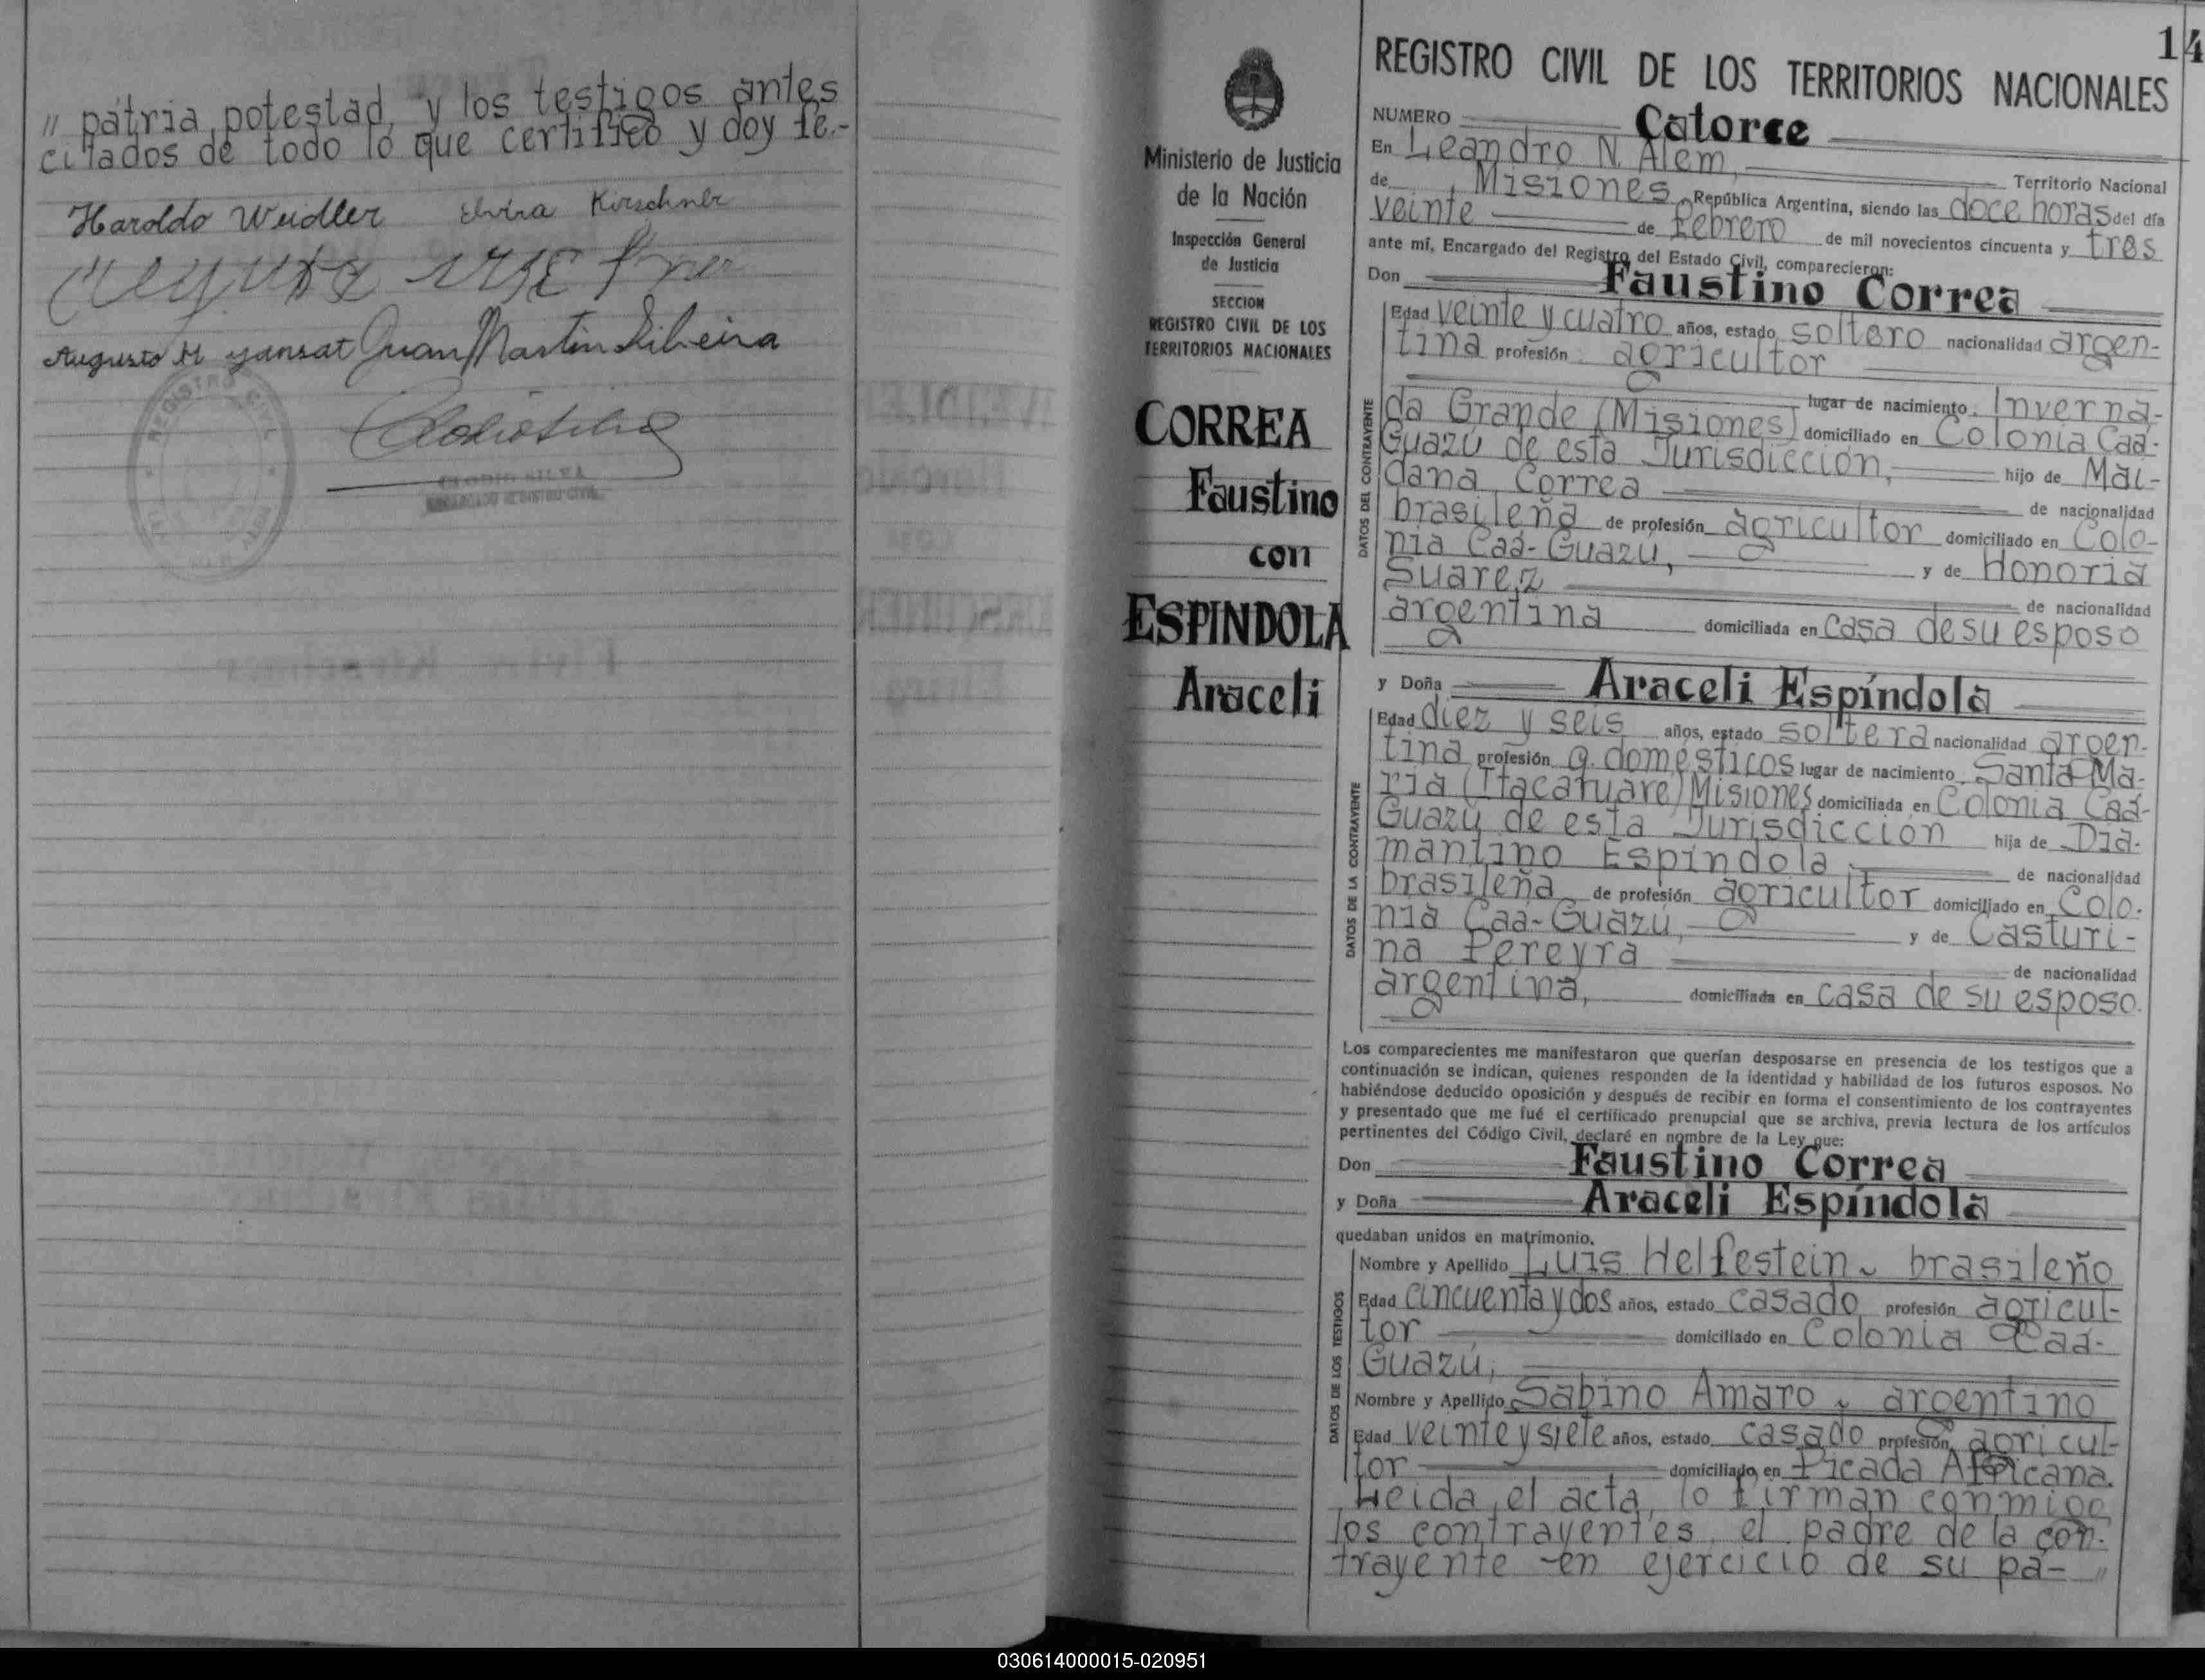 " pátria potestad, y los testigos antes
citados de todo lo que certifico y doy fe.-
Haroldo Weidler Elvira Kirschner
Augusto M yansat Juan Martin Silveira
REGISTRO CIVIL
CLODIO SILVA
ENCARGADO REGISTRO CIVIL
14
Ministerio de Justicia
de la Nación
Inspección General
de Justicia
SECCION
REGISTRO CIVIL DE LOS
TERRITORIOS NACIONALES
CORREA
Faustino
con
ESPINDOLA
Araceli
REGISTRO CIVIL DE LOS TERRITORIOS NACIONALES
NUMERO Catorce
En Leandro N. Alem, Territorio Nacional
de Misiones República Argentina, siendo las doce horas del día
veinte de Febrero de mil novecientos cincuenta y tres
ante mi, Encargado del Registro del Estado Civil, comparecieron:
Don Faustino Correa
DATOS DEL CONTRAYENTE
Edad veinte y cuatro años, estado soltero nacionalidad argen-
tina profesión agricultor
lugar de nacimiento Inverná-
da Grande (Misiones) domiciliado en Colonia Caá-
Guazú de esta Jurisdicción, hijo de Mai-
dana Correa de nacionalidad
brasileña de profesión agricultor domiciliado en Colo-
nia Caá-Guazú, y de Honoria
Suarez de nacionalidad
argentina domiciliada en casa de su esposo
y Doña Araceli Espíndola
DATOS DE LA CONTRAYENTE
Edad diez y seis años, estado soltera nacionalidad argen-
tina profesión q. domésticos lugar de nacimiento Santa Ma-
ría (Itacaruaré) Misiones domiciliada en Colonia Caá-
Guazú de esta Jurisdicción hija de Dia-
mantino Espíndola de nacionalidad
brasileña de profesión agricultor domiciliado en Colo-
nia Caá-Guazú, y de Casturi-
na Pereyra de nacionalidad
argentina, domiciliada en casa de su esposo.
Los comparecientes me manifestaron que querían desposarse en presencia de los testigos que a
continuación se indican, quienes responden de la identidad y habilidad de los futuros esposos. No
habiéndose deducido oposición y después de recibir en forma el consentimiento de los contrayentes
y presentado que me fué el certificado prenupcial que se archiva, previa lectura de los artículos
pertinentes del Código Civil, declaré en nombre de la Ley que:
Don Faustino Correa
y Doña Araceli Espíndola
quedaban unidos en matrimonio.
DATOS DE LOS TESTIGOS
Nombre y Apellido Luis Helfestein, brasileño
Edad cincuenta y dos años, estado casado profesión agricul-
tor domiciliado en Colonia Caá-
Guazú;
Nombre y Apellido Sabino Amaro, argentino
Edad veinte y siete años, estado casado profesión agricul-
tor domiciliado en Picada Africana.
Leida el acta, lo firman conmigo
los contrayentes, el padre de la con-
trayente en ejercicio de su pá- "
030614000015-020951